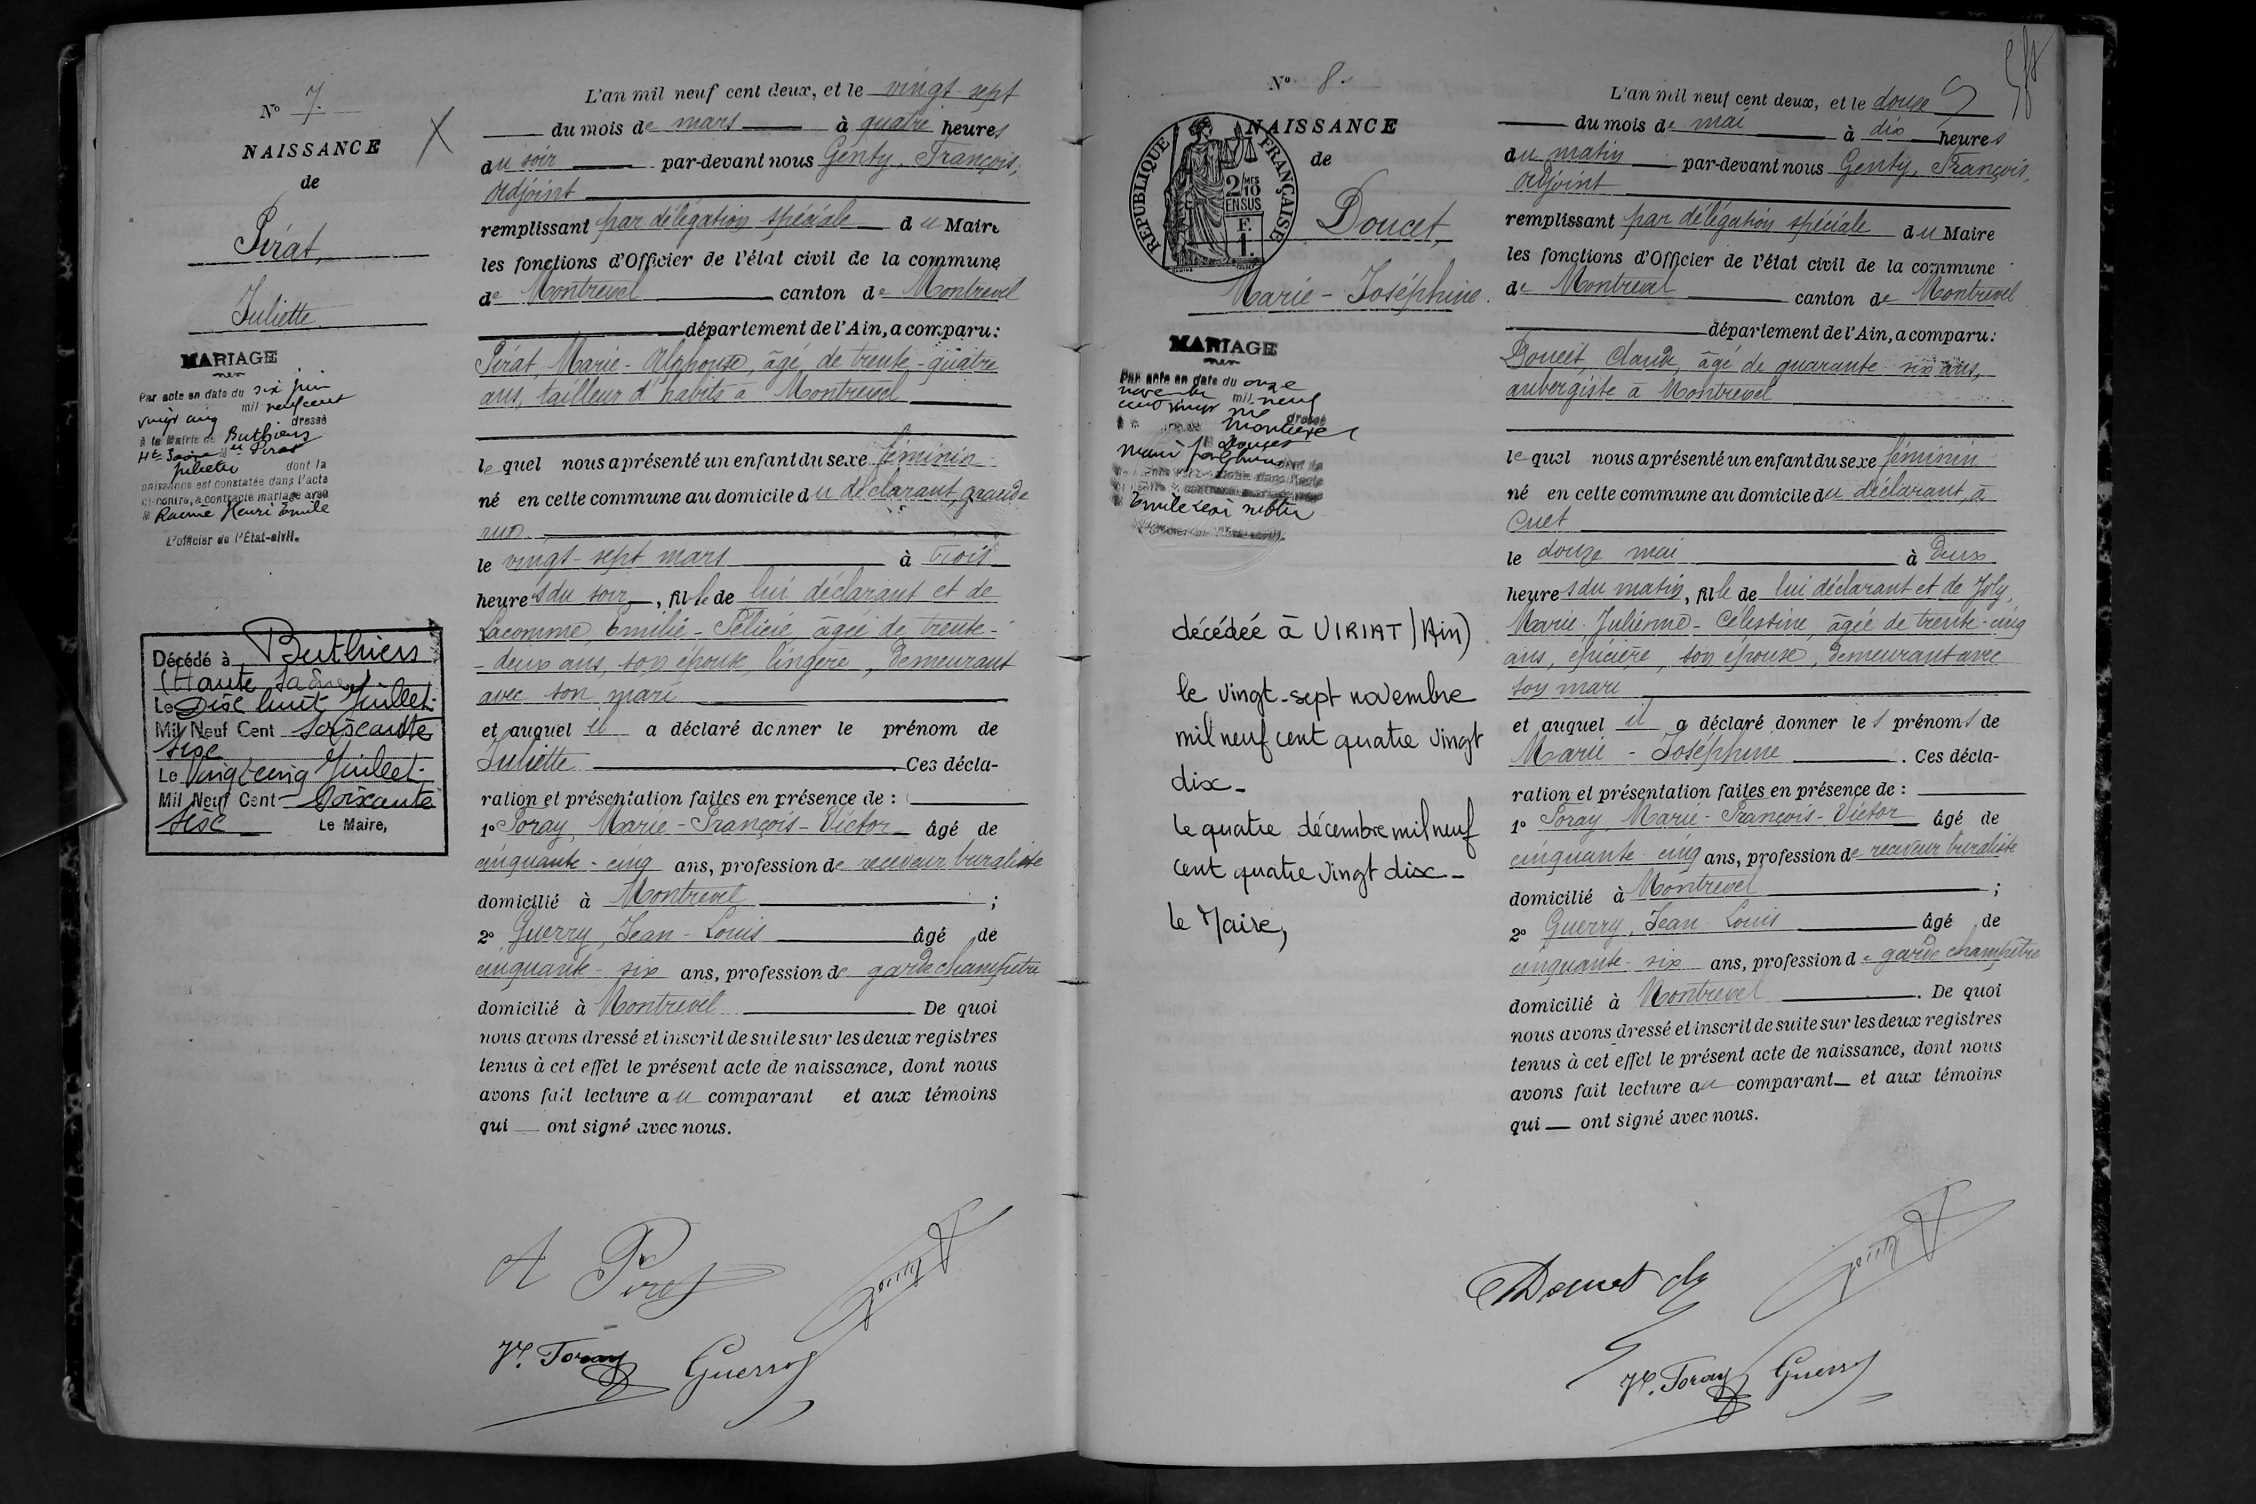 N° 7.
NAISSANCE
de
Pirat,
Juliette
MARIAGE
Par acte en date du six juin
mil neufcent
vingt cinq dressé
à la Mairie de Buthiers
Hte Saône Melle Pirat
Juliette dont la
naissance est constatée dans l'acte
ci-contre, a contracté mariage avec
M Racine Henri Emile
L'officier de l'État-civil.
Décédé à Buthiers
(Haute Saône)
Le Dix huit Juillet
Mil Neuf Cent soixante
six
Le Vingt cinq Juillet
Mil Neuf Cent Soixante
six Le Maire,
L'an mil neuf cent deux, et le vingt-sept
du mois de mars à quatre heures
du soir par-devant nous Genty, François,
adjoint
remplissant par délégation spéciale du Maire
les fonctions d'Officier de l'état civil de la commune
de Montrevel canton de Montrevel
département de l'Ain, a comparu:
Pirat, Marie-Alphonse, âgé de trente-quatre
ans, tailleur d'habits à Montrevel
lequel nous a présenté un enfant du sexe féminin
né en cette commune au domicile du déclarant, grande
rue
le vingt-sept mars à trois
heures du soir, fille de lui déclarant et de
Lacomme Emilie-Félicie, âgée de trente-
-deux ans, son épouse lingère, demeurant
avec son mari
et auquel il a déclaré donner le prénom de
Juliette Ces décla-
ration et présentation faites en présence de :
1° Poray, Marie-François-Victor âgé de
cinquante-cinq ans, profession de receveur buraliste
domicilié à Montrevel ;
2° Guerry, Jean-Louis âgé de
cinquante-six ans, profession de garde champêtre
domicilié à Montrevel De quoi
nous avons dressé et inscrit de suite sur les deux registres
tenus à cet effet le présent acte de naissance, dont nous
avons fait lecture au comparant et aux témoins
qui ont signé avec nous.
A Pirat
Genty
Guerry
N° 8.
NAISSANCE
de
REPUBLIQUE FRANÇAISE
2/10 MES
EN SUS
F.
1.
Doucet,
Marie-Joséphine.
MARIAGE
Par acte en date du onze
novembre mil neuf
dressé
Montrevel
décédée à VIRIAT (Ain)
le vingt-sept novembre
mil neuf cent quatre vingt
dix_
le quatre décembre mil neuf
cent quatre vingt dix_
le Maire,
L'an mil neuf cent deux, et le douze
du mois de mai à dix heures
du matin par-devant nous Genty, François,
adjoint
remplissant par délégation spéciale du Maire
les fonctions d'Officier de l'état civil de la commune
de Montrevel canton de Montrevel
département de l'Ain, a comparu:
Doucet, Claude, âgé de quarante-six ans,
aubergiste à Montrevel
lequel nous a présenté un enfant du sexe féminin
né en cette commune au domicile du déclarant, à
Cuet
le douze mai à deux
heures du matin, fille de lui déclarant et de Joly,
Marie-Julienne-Célestine, âgée de trente-cinq
ans, épicière, son épouse, demeurant avec
son mari
et auquel il a déclaré donner les prénoms de
Marie-Joséphine. Ces décla-
ration et présentation faites en présence de :
1° Poray, Marie-François-Victor âgé de
cinquante-cinq ans, profession de receveur buraliste
domicilié à Montrevel ;
2° Guerry, Jean-Louis âgé de
cinquante-six ans, profession de garde champêtre
domicilié à Montrevel. De quoi
nous avons dressé et inscrit de suite sur les deux registres
tenus à cet effet le présent acte de naissance, dont nous
avons fait lecture au comparant et aux témoins
qui ont signé avec nous.
Doucet cly
Genty
Guerry